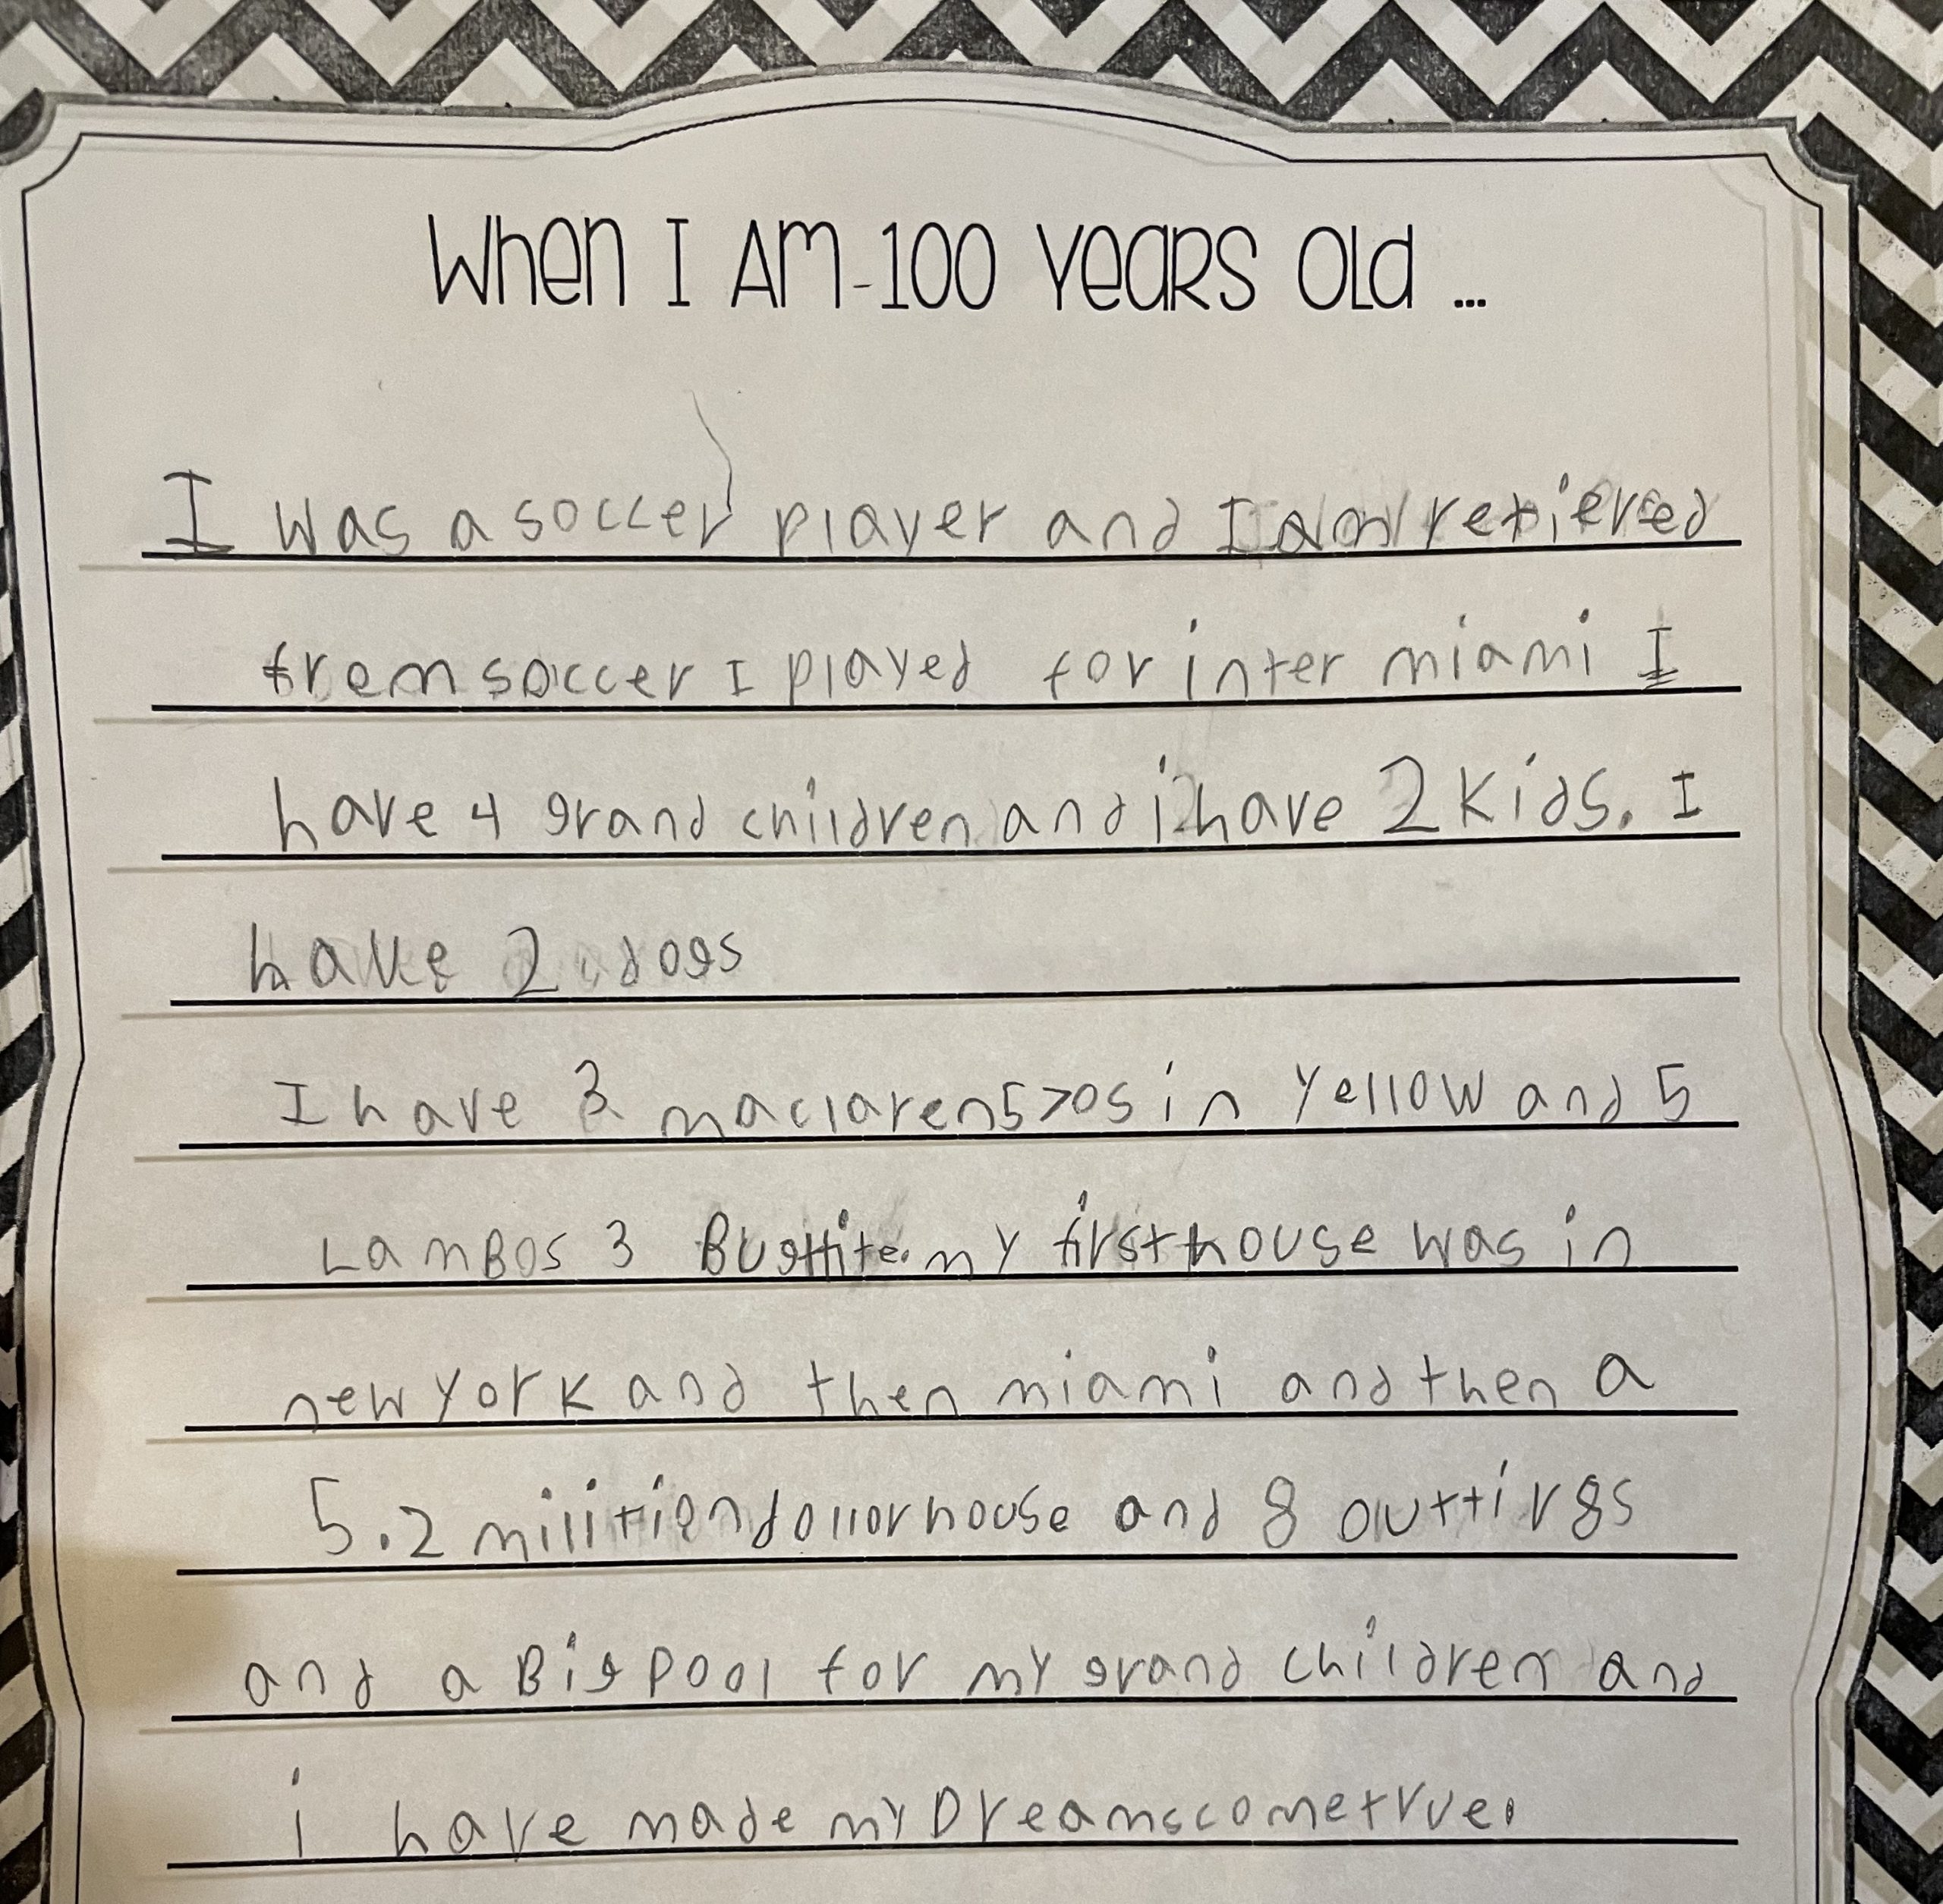 When I Am 100 Years Old ...
I was a soccer player and I am retiered
frem soccer I played for inter miami I
have 4 grand children and i have 2 kids. I
have 2 dogs
I have 3 maclaren 570s in yellow and 5
LamBos 3 my first house was in
new york and then miami and then a
5.2 million dollor house and 8
and a Big pool for my grand children and
i have made my Dreams come true.